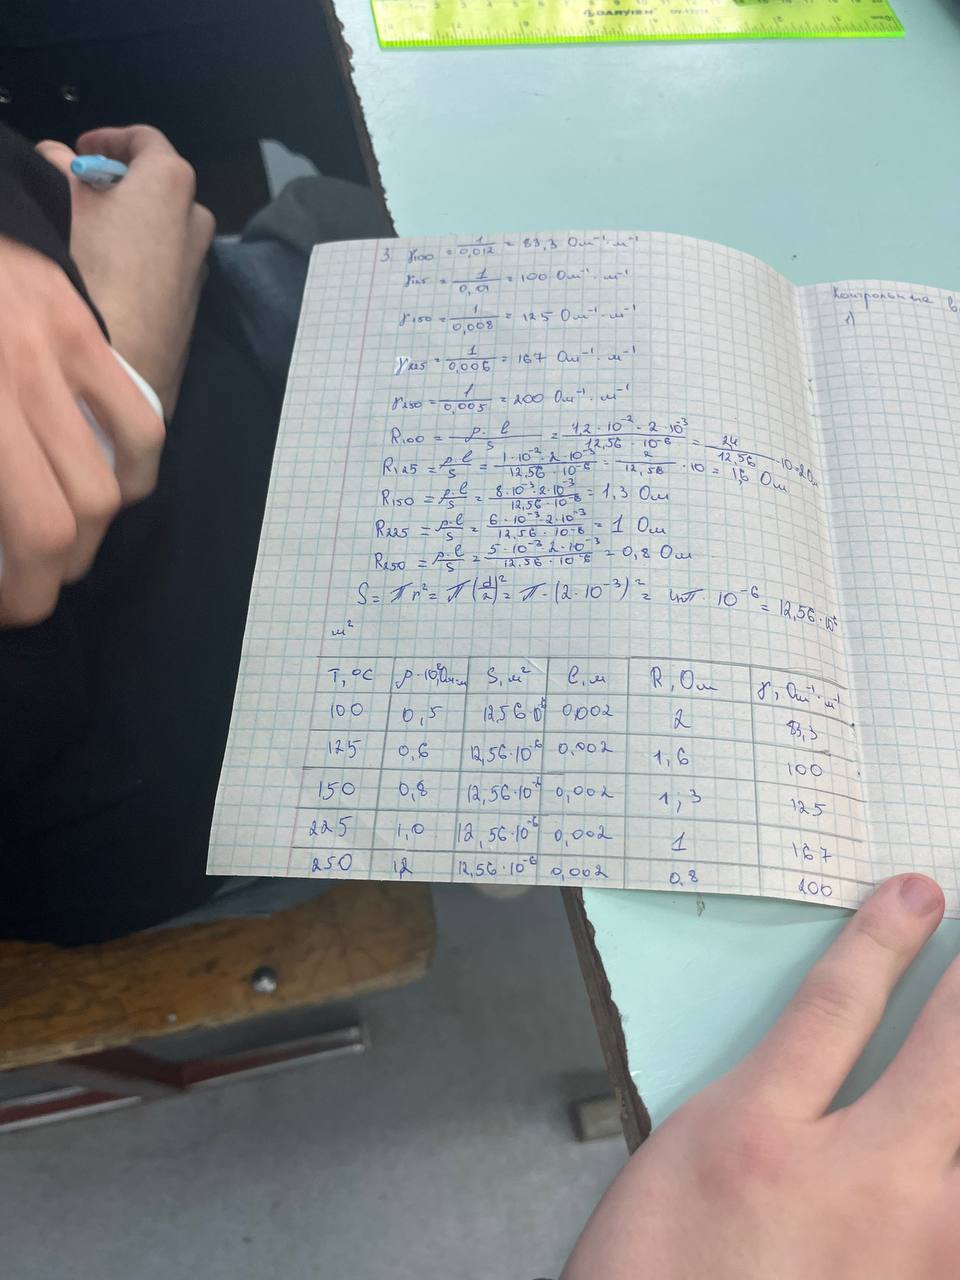 DARVISH
3. γ100 = 1/0,012 = 83,3 Ом⁻¹·м⁻¹
γ125 = 1/0,01 = 100 Ом⁻¹·м⁻¹
γ150 = 1/0,008 = 125 Ом⁻¹·м⁻¹
γ225 = 1/0,006 = 167 Ом⁻¹·м⁻¹
γ250 = 1/0,005 = 200 Ом⁻¹·м⁻¹
R100 = ρ·l/S = 1,2·10⁻²·2·10⁻³/12,56·10⁻⁶ = 24/12,56·10=2Ом
R125 = ρ·l/S = 1·10⁻²·2·10⁻³/12,56·10⁻⁶ = 2/12,56·10 = 1,6 Ом
R150 = ρ·l/S = 8·10⁻³·2·10⁻³/12,56·10⁻⁶ = 1,3 Ом
R225 = ρ·l/S = 6·10⁻³·2·10⁻³/12,56·10⁻⁶ = 1 Ом
R250 = ρ·l/S = 5·10⁻³·2·10⁻³/12,56·10⁻⁶ = 0,8 Ом
S = πr² = π(d/2)² = π·(2·10⁻³)² = 4π·10⁻⁶ = 12,56·10⁻⁶
м²
T, °C S, м² l, м R, Ом γ, Ом⁻¹·м⁻¹
100 0,5 12,56·10⁻⁶ 0,002 2 83,3
125 0,6 12,56·10⁻⁶ 0,002 1,6 100
150 0,8 12,56·10⁻⁶ 0,002 1,3 125
225 1,0 12,56·10⁻⁶ 0,002 1 167
250 1,2 12,56·10⁻⁶ 0,002 0,8 200
Контрольные в
1)